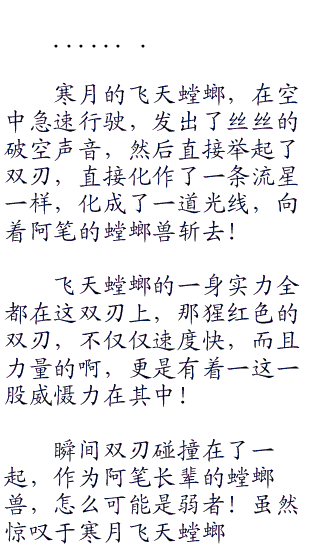 ...... .
寒月的飞天螳螂，在空
中急速行驶，发出了丝丝的
破空声音，然后直接举起了
双刃，直接化作了一条流星
一样，化成了一道光线，向
着阿笔的螳螂兽斩去！
飞天螳螂的一身实力全
都在这双刃上，那猩红色的
双刃，不仅仅速度快，而且
力量的啊，更是有着一这一
股威慑力在其中！
瞬间双刃碰撞在了一
起，作为阿笔长辈的螳螂
兽，怎么可能是弱者！虽然
惊叹于寒月飞天螳螂